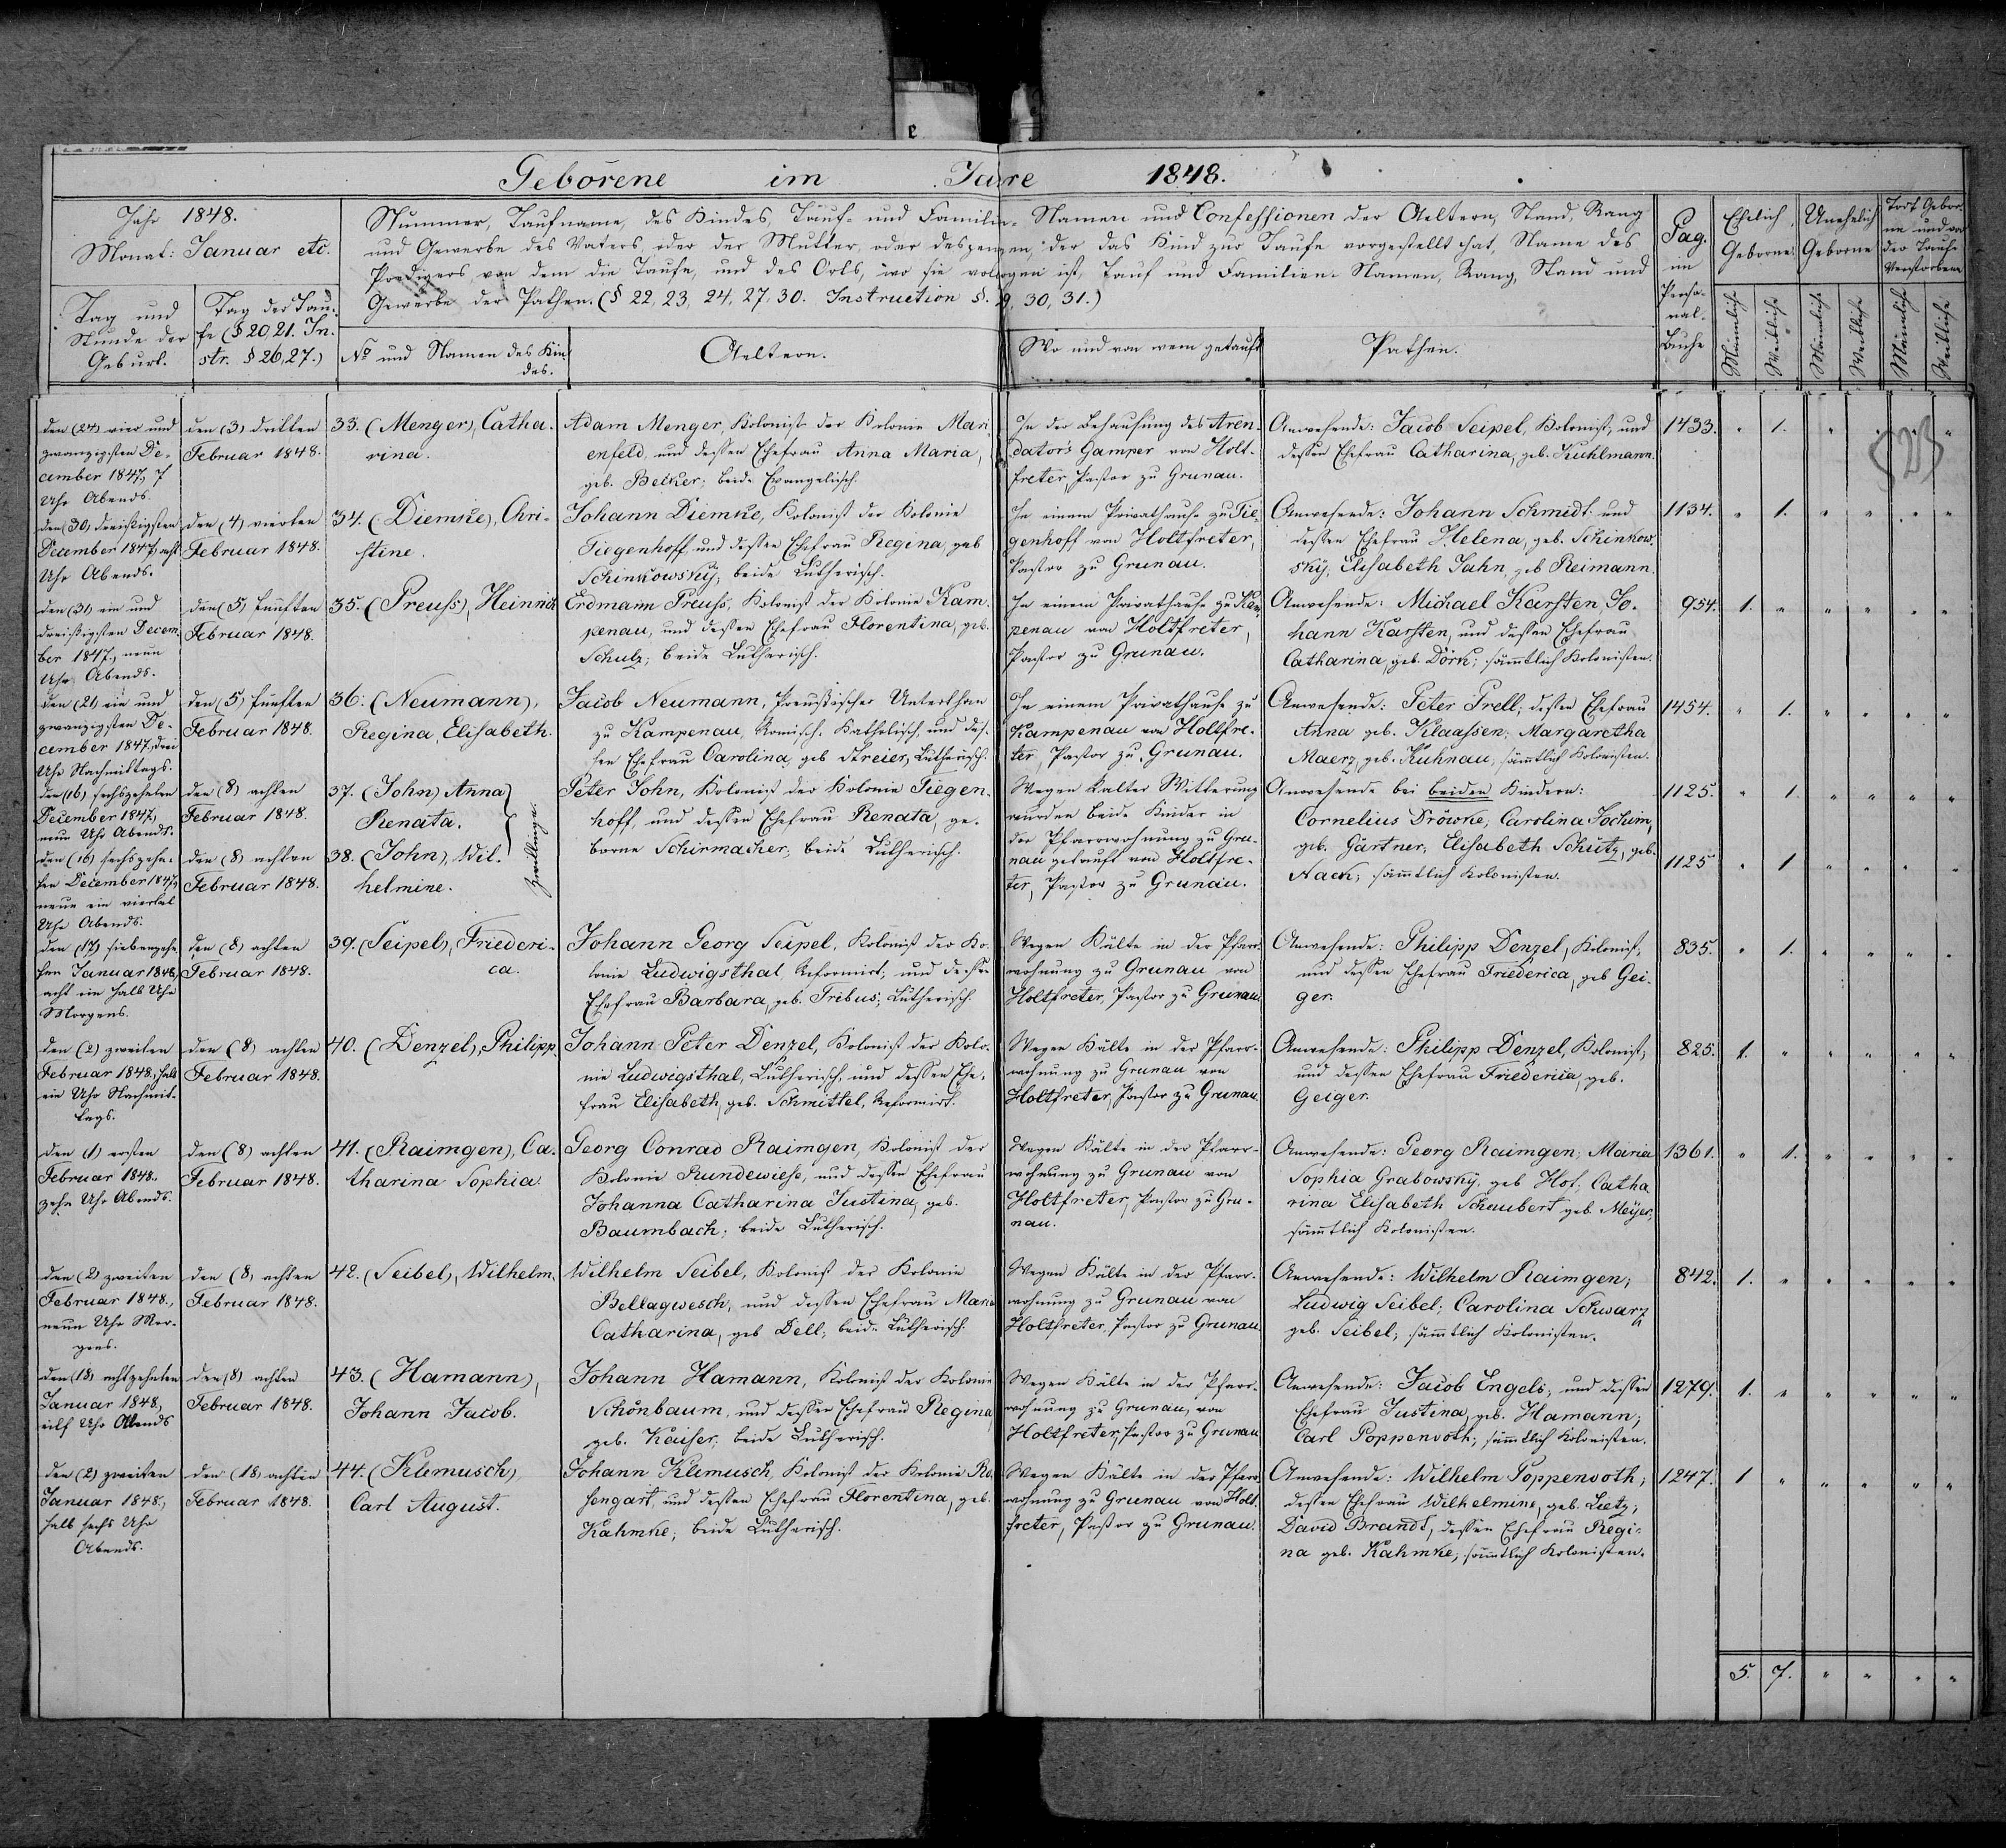 Geborene im Jahre 1848.
Jahr 1848.
Monat: Januar etc.
Nummer, Taufname, des Kindes, Tauf- und Familien-Namen und Confessionen der Aeltern, Stand, Rang
und Gewerbe des Vaters, oder der Mutter, oder desjenigen, der das Kind zur Taufe vorgestellt hat, Name des
Predigers, von dem die Taufe, und des Orts, wo sie vollzogen ist, Tauf und Familien-Namen, Rang, Stand und
Gewerbe der Pathen. (§ 22, 23, 24, 27, 30. Instruction §. 29, 30, 31.)
Tag und
Stunde der
Geburt.
Tag der Tau-
fe (§ 20, 21. In-
str. § 26, 27.)
No und Namen des Kin-
des.
Aeltern.
Wo und von wem getauft
Pathen.
Pag.
im
Perso-
nal-
Buche
Ehelich
Geborne
Unehelich
Geborne
Todt Gebor-
ne und vor
der Taufe
Verstorbene
Männlich
Weiblich
Männlich
Weiblich
Männlich
Weiblich
den (24) vier und
zwanzigsten De-
cember 1847, 7
Uhr Abends.
den (3) dritten
Februar 1848.
33. (Menger), Catha-
rina.
Adam Menger, Kolonist der Kolonie Mari-
enfeld, und dessen Ehefrau Anna Maria,
geb. Becker; beide Evangelisch.
In der Behausung des Aren-
dators Gamper von Holt-
freter, Pastor zu Grunau.
Anwesende: Jacob Seipel, Kolonist, und
dessen Ehefrau Catharina, geb. Kuhlmann.
1433. " 1. " " " "
den (30) dreißigsten
December 1847, acht
Uhr Abends.
den (4) vierten
Februar 1848.
34. (Diemke), Chri-
stine.
Johann Diemke, Kolonist der Kolonie
Tiegenhoff, und dessen Ehefrau Regina, geb
Schinkowsky; beide Lutherisch.
In einem Privathause zu Tie-
genhoff von Holtfreter,
Pastor zu Grunau.
Anwesende: Johann Schmidt und
dessen Ehefrau Helena, geb. Schinkow-
sky; Elisabeth Jahn, geb Reimann.
1134. " 1. " " " "
den (31) ein und
dreißigsten Decem-
ber 1847., neun
Uhr Abends.
den (5) fünften
Februar 1848.
35. (Preuss), Heinrich
Erdmann Preuss, Kolonist der Kolonie Kam-
penau, und dessen Ehefrau Florentina, geb.
Schulz; beide Lutherisch.
In einem Privathause zu Kam-
penau von Holtfreter,
Pastor zu Grunau.
Anwesende: Michael Karsten, Jo-
hann Karsten, und dessen Ehefrau
Catharina, geb. Dörk; sämmtlich Kolonisten.
954. 1. " " " " "
den (21) ein und
zwanzigsten De-
cember 1847, drei
Uhr Nachmittags.
den (5) fünften
Februar 1848.
36. (Neumann),
Regina, Elisabeth.
Jacob Neumann, Preußischer Unterthan
zu Kampenau, Römisch-Katholisch, und des-
sen Ehefrau Carolina, geb Streier, Lutherisch.
In einem Privathause zu
Kampenau von Holtfre-
ter, Pastor zu Grunau.
Anwesende: Peter Prell; dessen Ehefrau
Anna geb. Klaassen; Margaretha
Maerz, geb. Kuhnau; sämmtlich Kolonisten.
1454. " 1. " " " "
den (16) sechszehnten
December 1847,
neun Uhr Abends.
den (8) achten
Februar 1848.
37. (John) Anna
Renata.
Zwillinge.
Peter John, Kolonist der Kolonie Tiegen-
hoff, und dessen Ehefrau Renata, ge-
borne Schirmacher; beide Lutherisch.
Wegen kalter Witterung
wurden beide Kinder in
der Pfarrwohnung zu Gru-
nau getauft von Holtfre-
ter, Pastor zu Grunau.
Anwesende bei beiden Kindern:
Cornelius Dröwke; Carolina Jochim,
geb. Gärtner; Elisabeth Schütz, geb.
Nack; sämmtlich Kolonisten.
1125. " 1. " " " "
den (16) sechszehn-
ten December 1847,
neun ein viertel
Uhr Abends.
den (8) achten
Februar 1848.
38. (John), Wil-
helmine.
1125 " 1 " " " "
den (17) siebenzehn-
ten Januar 1848,
acht ein halb Uhr
Morgens.
den (8) achten
Februar 1848.
39. (Seipel), Friederi-
ca.
Johann Georg Seipel, Kolonist der Ko-
lonie Ludwigsthal, Reformirt; und dessen
Ehefrau Barbara, geb. Tribus; Lutherisch.
Wegen Kälte in der Pfarr-
wohnung zu Grunau von
Holtfreter, Pastor zu Grunau.
Anwesende: Philipp Denzel, Kolonist,
und dessen Ehefrau Friederica, geb Gei-
ger.
835. " 1. " " " "
den (2) zweiten
Februar 1848, halb
ein Uhr Nachmit-
tags.
den (8) achten
Februar 1848.
40. (Denzel), Philipp.
Johann Peter Denzel, Kolonist der Kolo-
nie Ludwigsthal, Lutherisch, und dessen Ehe-
frau Elisabeth, geb. Schmittel, Reformirt.
Wegen Kälte in der Pfarr-
wohnung zu Grunau von
Holtfreter, Pastor zu Grunau.
Anwesende: Philipp Denzel, Kolonist,
und dessen Ehefrau Friedericia, geb.
Geiger.
825. 1. " " " " "
den (1) ersten
Februar 1848.
zehn Uhr Abends.
den (8) achten
Februar 1848.
41. (Raimgen), Ca-
tharina Sophia.
Georg Conrad Raimgen, Kolonist der
Kolonie Rundewiese, und dessen Ehefrau
Johanna Catharina Justina, geb.
Baumbach; beide Lutherisch.
Wegen Kälte in der Pfarr-
wohnung zu Grunau von
Holtfreter, Pastor zu Gru-
nau.
Anwesende: Georg Raimgen; Maria
Sophia Grabowsky, geb Hot; Catha-
rina Elisabeth Schaubert geb. Meijer;
sämmtlich Kolonisten.
1361. " 1. " " " "
den (2) zweiten
Februar 1848.,
neun Uhr Mor-
gens.
den (8) achten
Februar 1848.
42. (Seibel), Wilhelm.
Wilhelm Seibel, Kolonist der Kolonie
Bellagwesch, und dessen Ehefrau Maria
Catharina, geb Dell; beide Lutherisch.
Wegen Kälte in der Pfarr-
wohnung zu Grunau von
Holtfreter, Pastor zu Grunau.
Anwesende: Wilhelm Raimgen;
Ludwig Seibel; Carolina Schwarz
geb. Seibel; sämmtlich Kolonisten.
842. 1. " " " " "
den (18) achtzehnten
Januar 1848,
eilf Uhr Abends
den (8) achten
Februar 1848.
43. (Hamann),
Johann Jacob.
Johann Hamann, Kolonist der Kolonie
Schönbaum, und dessen Ehefrau Regina,
geb. Kaiser; beide Lutherisch.
Wegen Kälte in der Pfarr-
wohnung zu Grunau, von
Holtfreter, Pastor zu Grunau
Anwesende: Jacob Engels, und dessen
Ehefrau Justina, geb. Hamann;
Carl Poppenroth; sämmtlich Kolonisten.
1279. 1. " " " " "
den (2) zweiten
Januar 1848.,
halb sechs Uhr
Abends.
den (18) achten
Februar 1848.
44. (Klemusch),
Carl August.
Johann Klemusch, Kolonist der Kolonie Ro-
sengart, und dessen Ehefrau Florentina, geb.
Kähmke; beide Lutherisch.
Wegen Kälte in der Pfarr-
wohnung zu Grunau von Holt-
freter, Pastor zu Grunau.
Anwesende: Wilhelm Poppenroth;
dessen Ehefrau Wilhelmine, geb. Lietz;
David Brandt, dessen Ehefrau Regi-
na geb. Kähmke; sämmtlich Kolonisten.
1247. 1 " " " " "
5. 7. " " " "